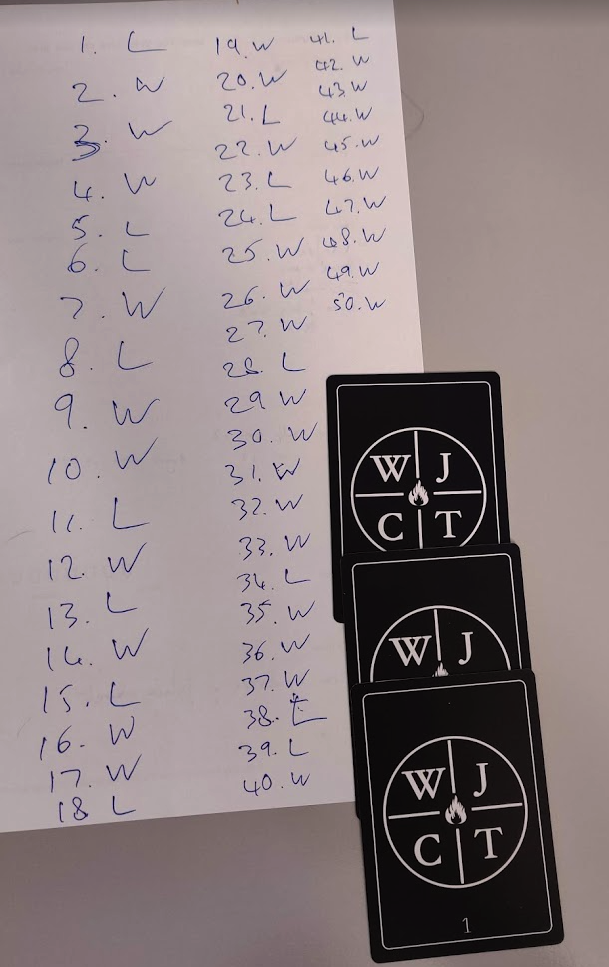 1. L
2. W
3. W
4. W
5. L
6. L
7. W
8. L
9. W
10. W
11. L
12. W
13. L
14. W
15. L
16. W
17. W
18 L
19. W
20. W
21. L
22. W
23. L
24. L
25. W
26. W
27. W
28. L
29 W
30. W
31. W
32. W
33. W
34. L
35. W
36. W
37. W
38. L
39. L
40. W
41. L
42. W
43. W
44. W
45. W
46. W
47. W
48. W
49. W
50. W
W J
C T
W J
W J
C T
1